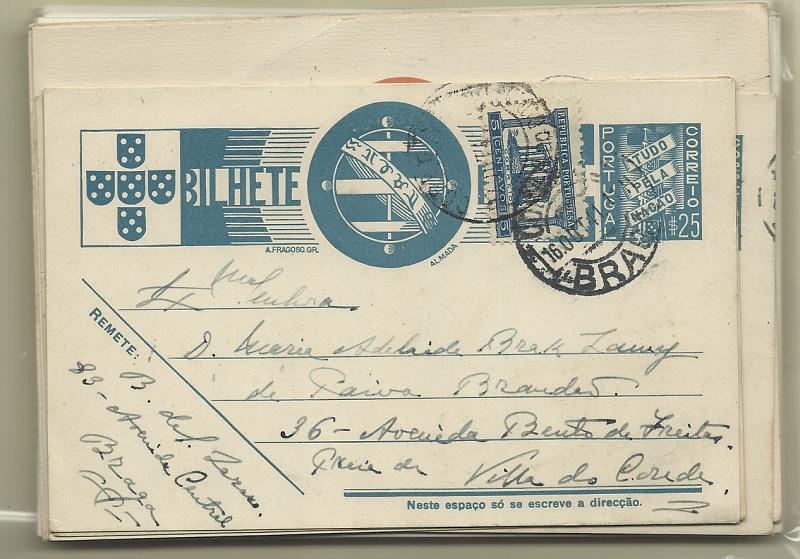 BILHETE
REPUBLICA PORTUGUESA
5 CENTAVOS 5
PORTUGAL
TUDO
PELA
NAÇÃO
CORREIO
$25
16.OUT.41
BRAGA
A.FRAGOSO.GR.
ALMADA
Exma
Senhora
D. Maria Adelaide Brak-Lamy
de Paiva Brandão.
36 - Avenida Bento de Freitas.
Villa do Conde
REMETE:
83 - Avenida Central
Braga
Neste espaço só se escreve a direcção.